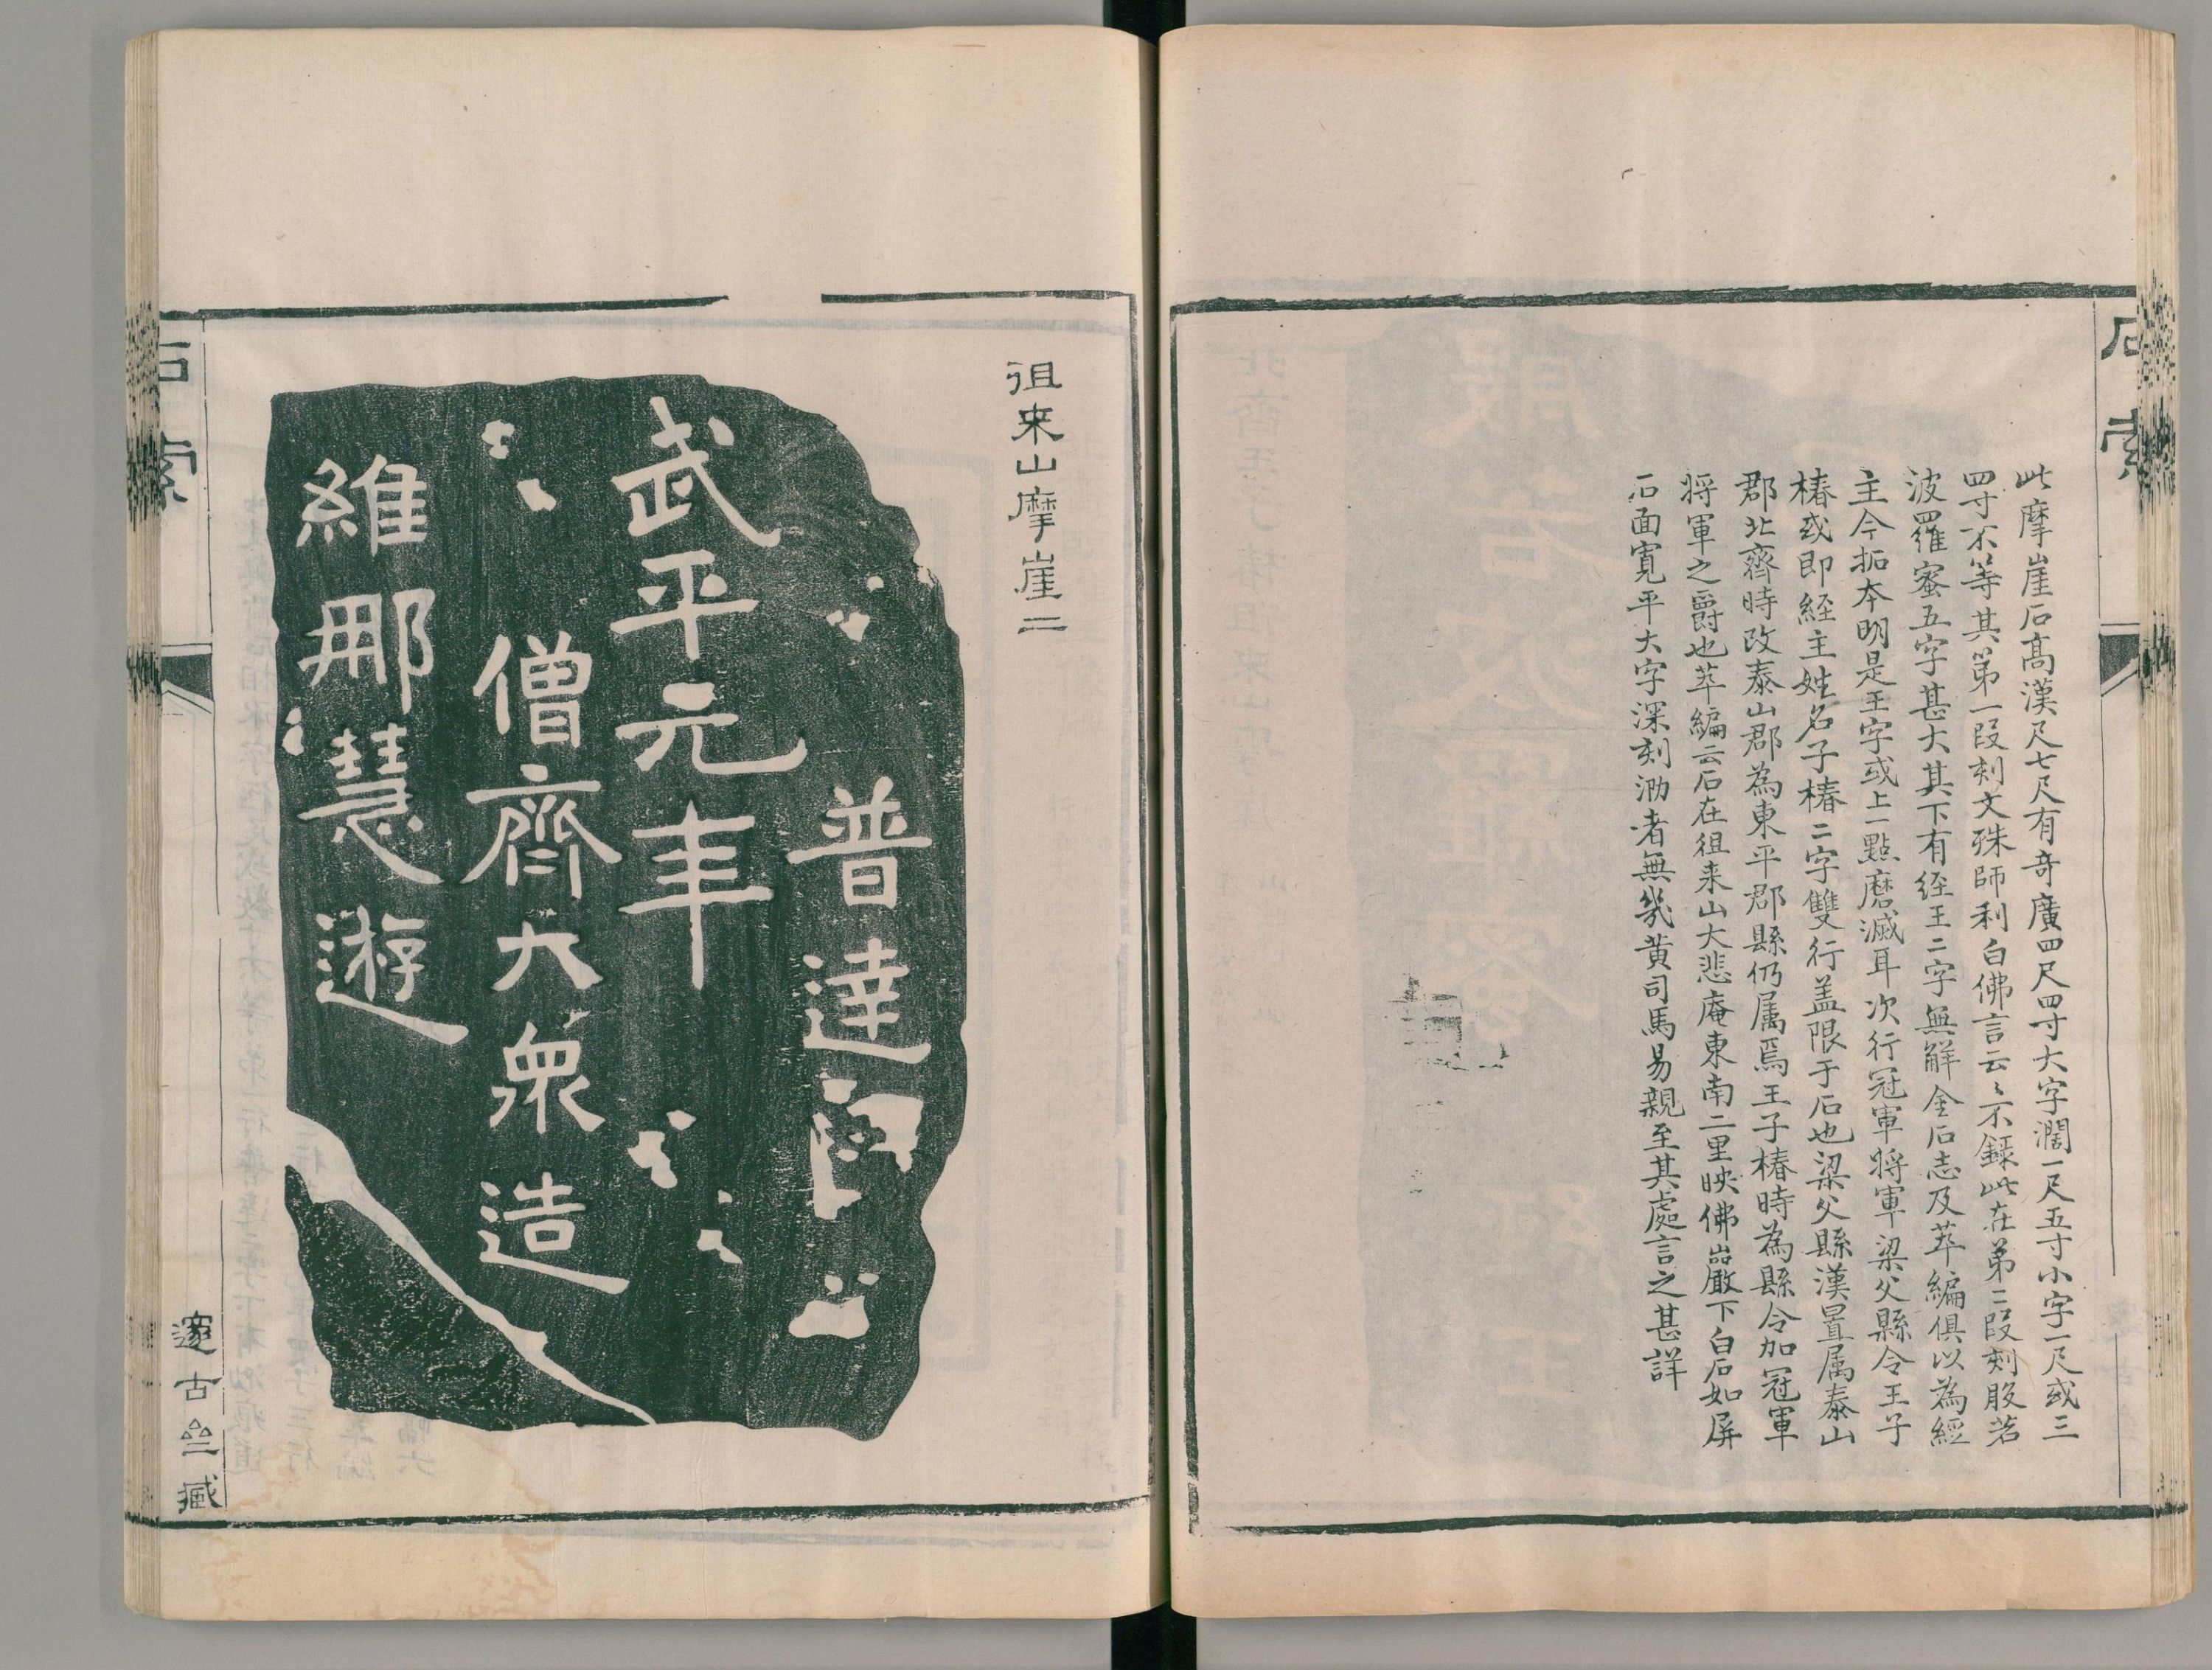 石索
此摩崖石高漢尺七尺有奇廣四尺四寸大字濶一尺五寸小字一尺或三
四寸不等其第一段刻文殊師利白佛言云〻不錄此在第二段刻般若
波羅蜜五字甚大其下有経王二字無觧金石志及萃編俱以為經
主今拓本明是王字或上一點磨滅耳次行冠軍將軍梁父縣令王子
椿或即經主姓名子椿二字雙行盖限于石也梁父縣漢置属泰山
郡北齊時改泰山郡為東平郡縣仍属焉王子椿時為縣令加冠軍
将軍之爵也萃編云石在徂来山大悲庵東南二里映佛巖下白石如屏
石面寛平大字深刻泐者無幾黄司馬易親至其處言之甚詳
徂来山摩崖二
普達
武平元年
僧齊大衆造
維那慧遊
石索
邃古亝臧